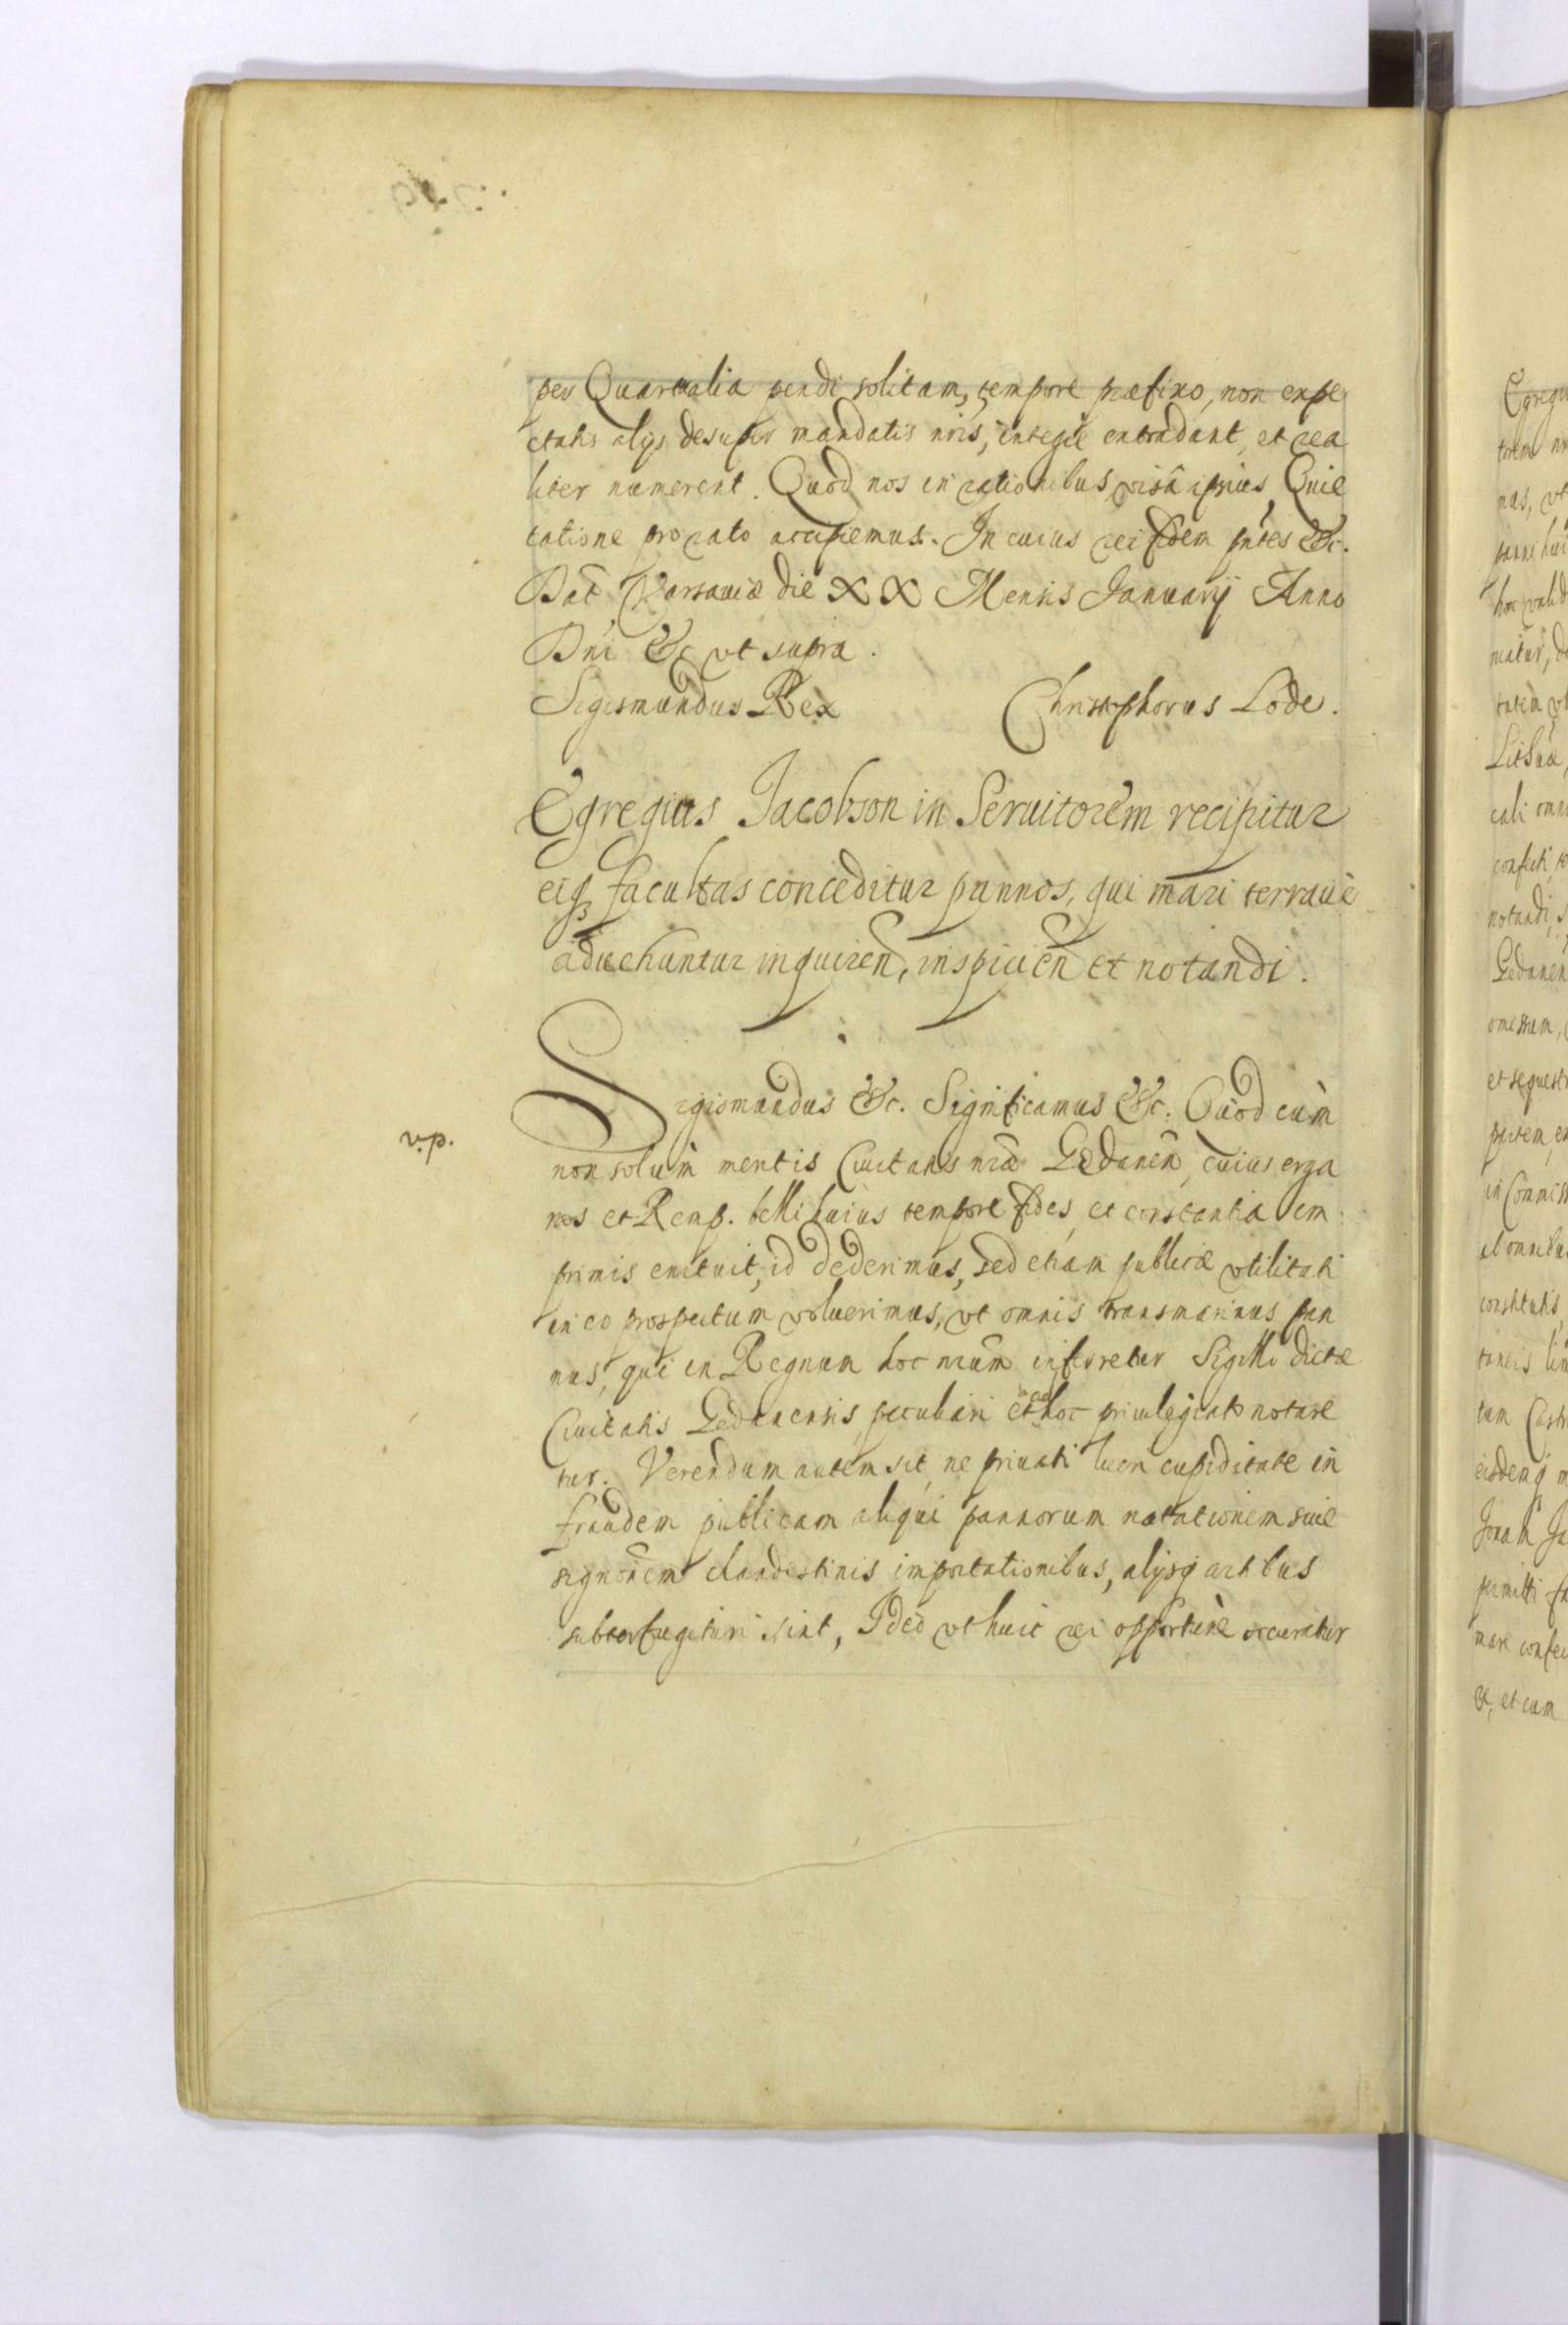 per Quartualia pendi solitam, tempore præfixo, non expe
ctatis alijs desuper mandatis nris, integrè extradant, et rea
liter numerent. Quod nos in rationibus, visâ ipsius Quie
tatione pro rato accipiemus. In cuius rei fidem pntes &c.
Dat Varsauiæ die XX Mensis Januarij Anno
Dni &c vt supra.
Sigismundus Rex Christophorus Lode.
Egregius Jacobson in Seruitorem recipitur
eiq facultas conceditur pannos, qui mari terraue
aduehuntur inquiren, inspicien et notandi.
v.p.
Sigismundus &c. Significamus &c. Quod cum
non solùm mentis Ciuitatis nræ Gedanen, cuius erga
nos et Remp. belli huius tempore fides, et constantia im
primis enituit, id dederimus, sed etiam publicæ vtilitati
in eo prospectum voluerimus, vt omnis transmarinus pan
nus, qui in Regnum hoc nrum inferretur Sigillo dictæ
Ciuitatis Gedanensis peculiari et ad hoc priuilegiato notare
tur. Verendum autem sit, ne priuati lucri cupiditate in
fraudem publicam aliqui pannorum notationem siue
signonem clandestinis importationibus, alijsq artibus
subterfugituri sint, Ideo vt huic rei opportunè occurratur